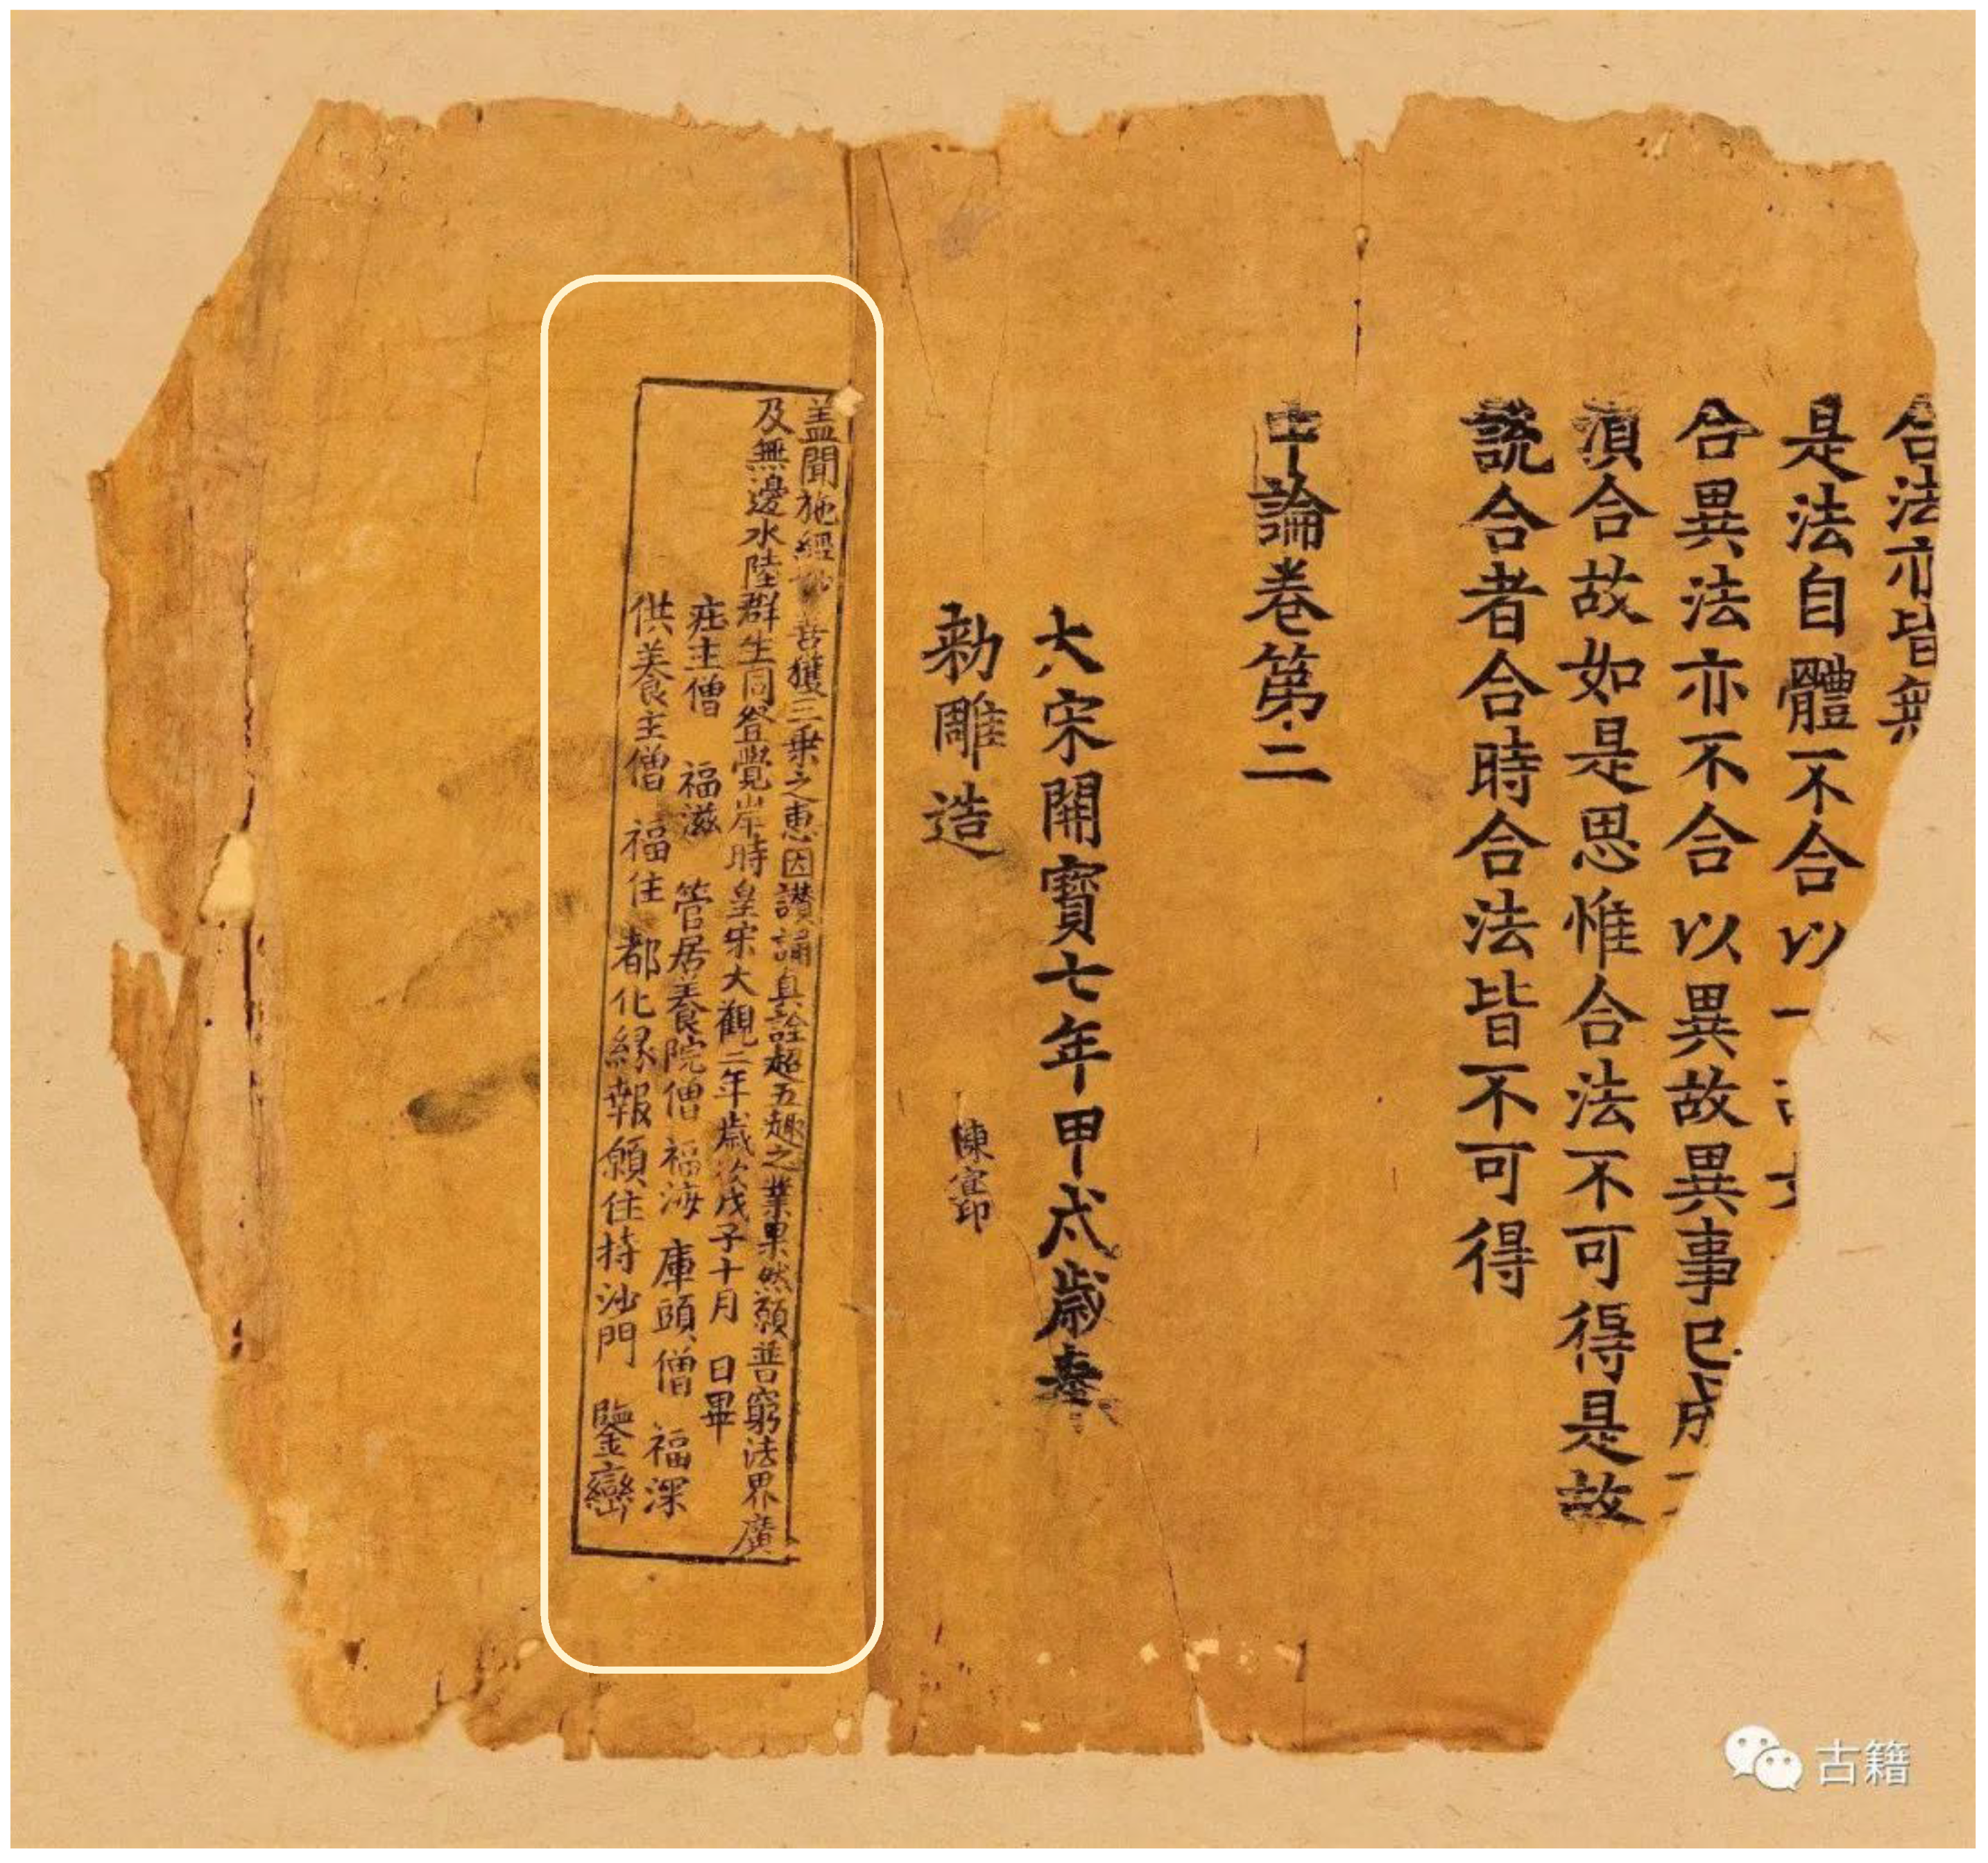 合法亦皆無
是法自體不合以一
合異法亦不合以異故異事已成
須合故如是思惟合法不可得是故
説合者合時合法皆不可得
中論卷第二
大宋開寶七年甲戌歲奉
勑雕造
陳宣印
盖聞施經妙善獲三乗之惠因讃誦真詮超五趣之業果然願普窮法界廣
及無邊水陸群生同登覺岸時皇宋大觀二年歲次戊子十月 日畢
庄主僧 福滋 管居養院僧 福海 庫頭僧 福深
供養主僧 福住 都化緣報願住持沙門 鑒巒
古籍